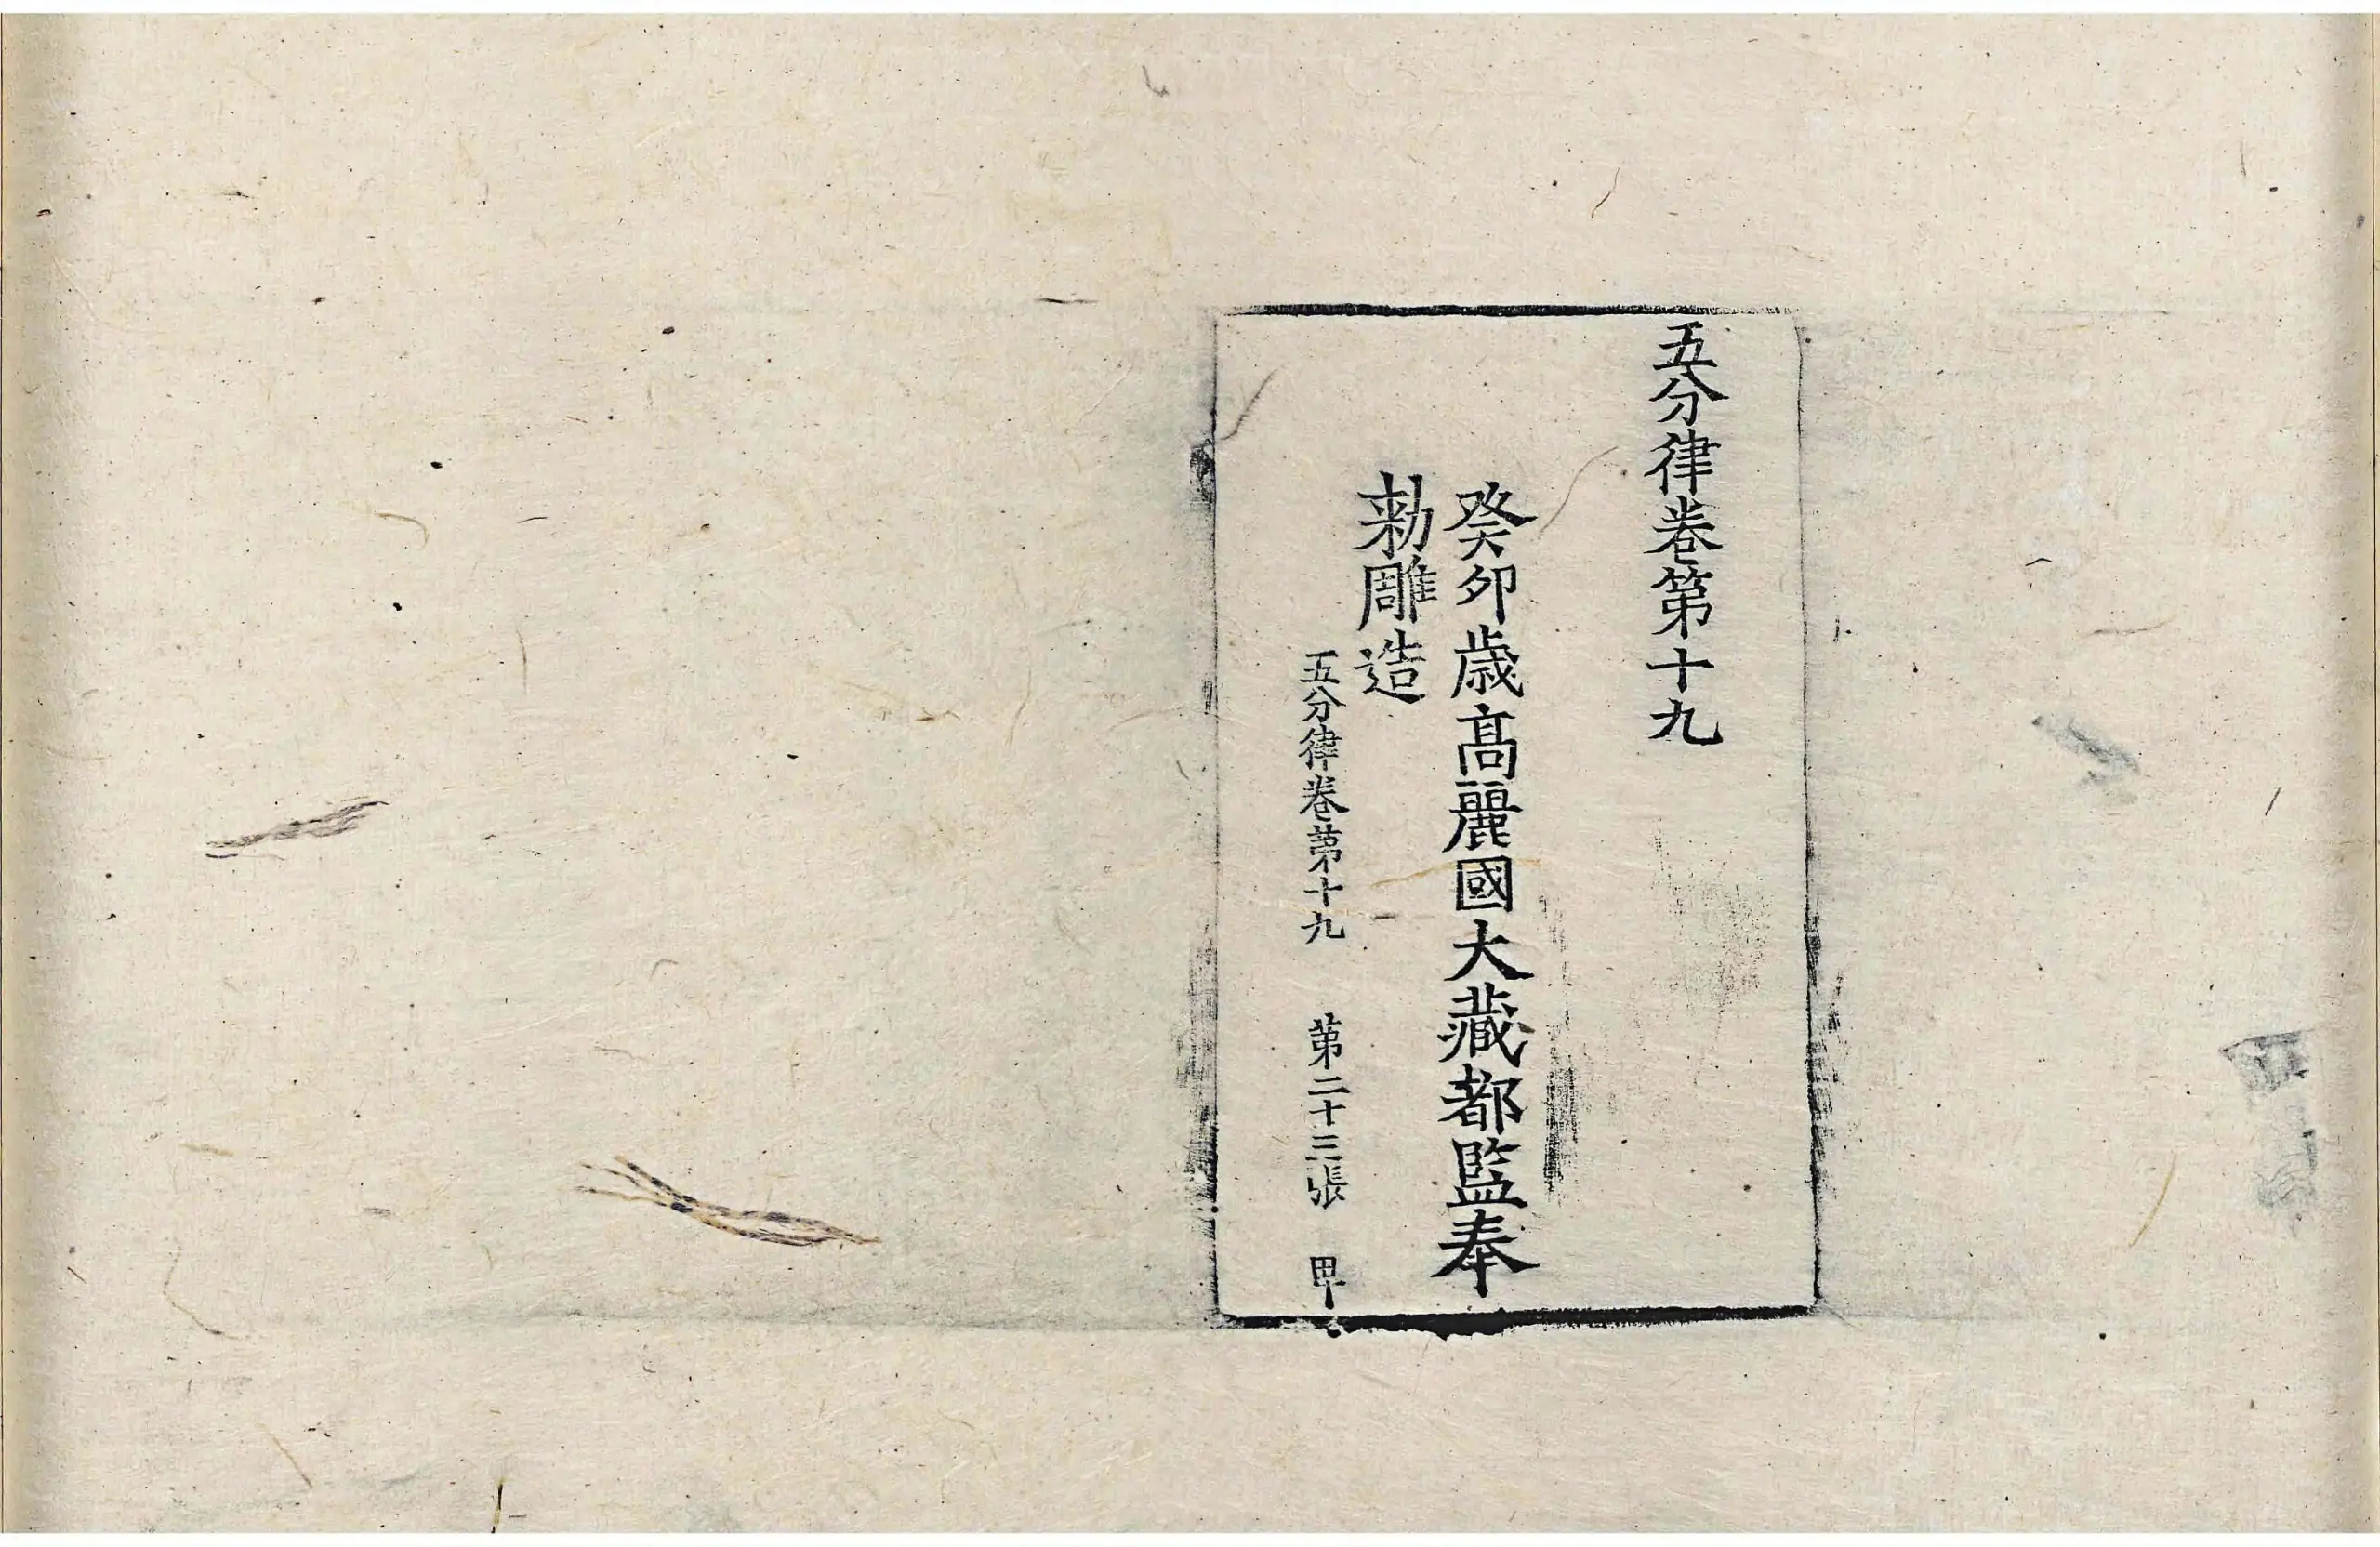 五分律卷第十九
癸卯歳髙麗國大藏都監奉
勑雕造
五分律卷第十九 第二十三張 甲